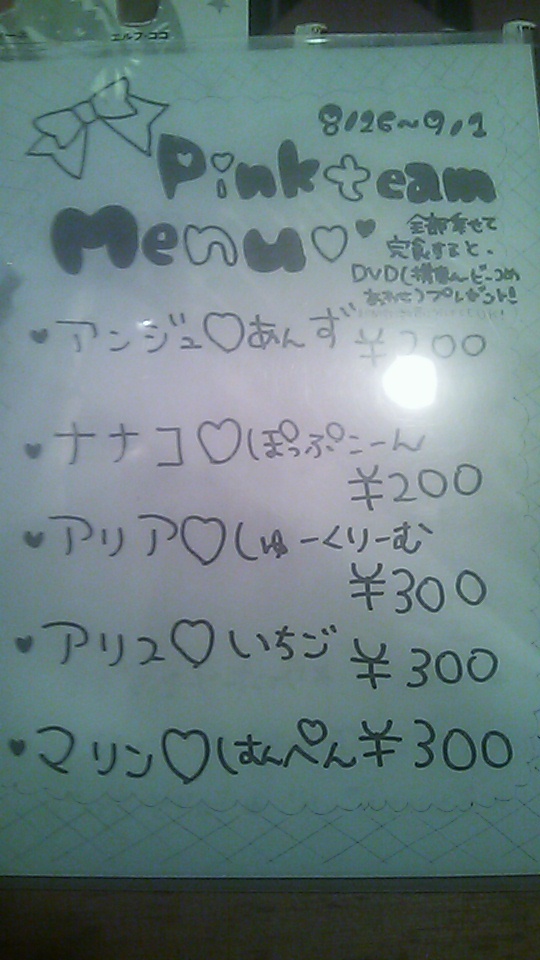 エルフ・ココ
8/26~9/1
Pink team
Menu♡♥
全部乗せて
完食すると、
プレゼント!!
♥アンジュ♡あんず ¥200
♥ナナコ♡ぽっぷこーん
¥200
♥アリア♡しゅーくりーむ
¥300
♥アリュ♡いちご ¥300
♥マリン♡はんぺん ¥300